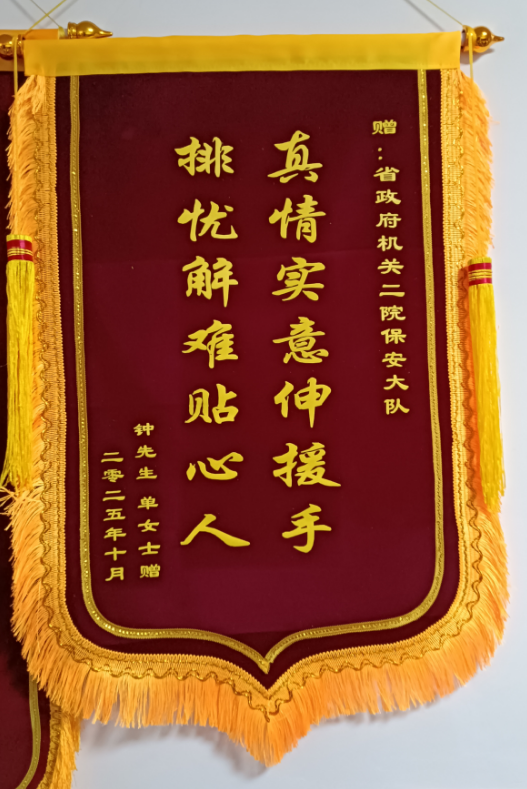 赠：省政府机关二院保安大队
真情实意伸援手
排忧解难贴心人
钟先生 单女士赠
二零二五年十月